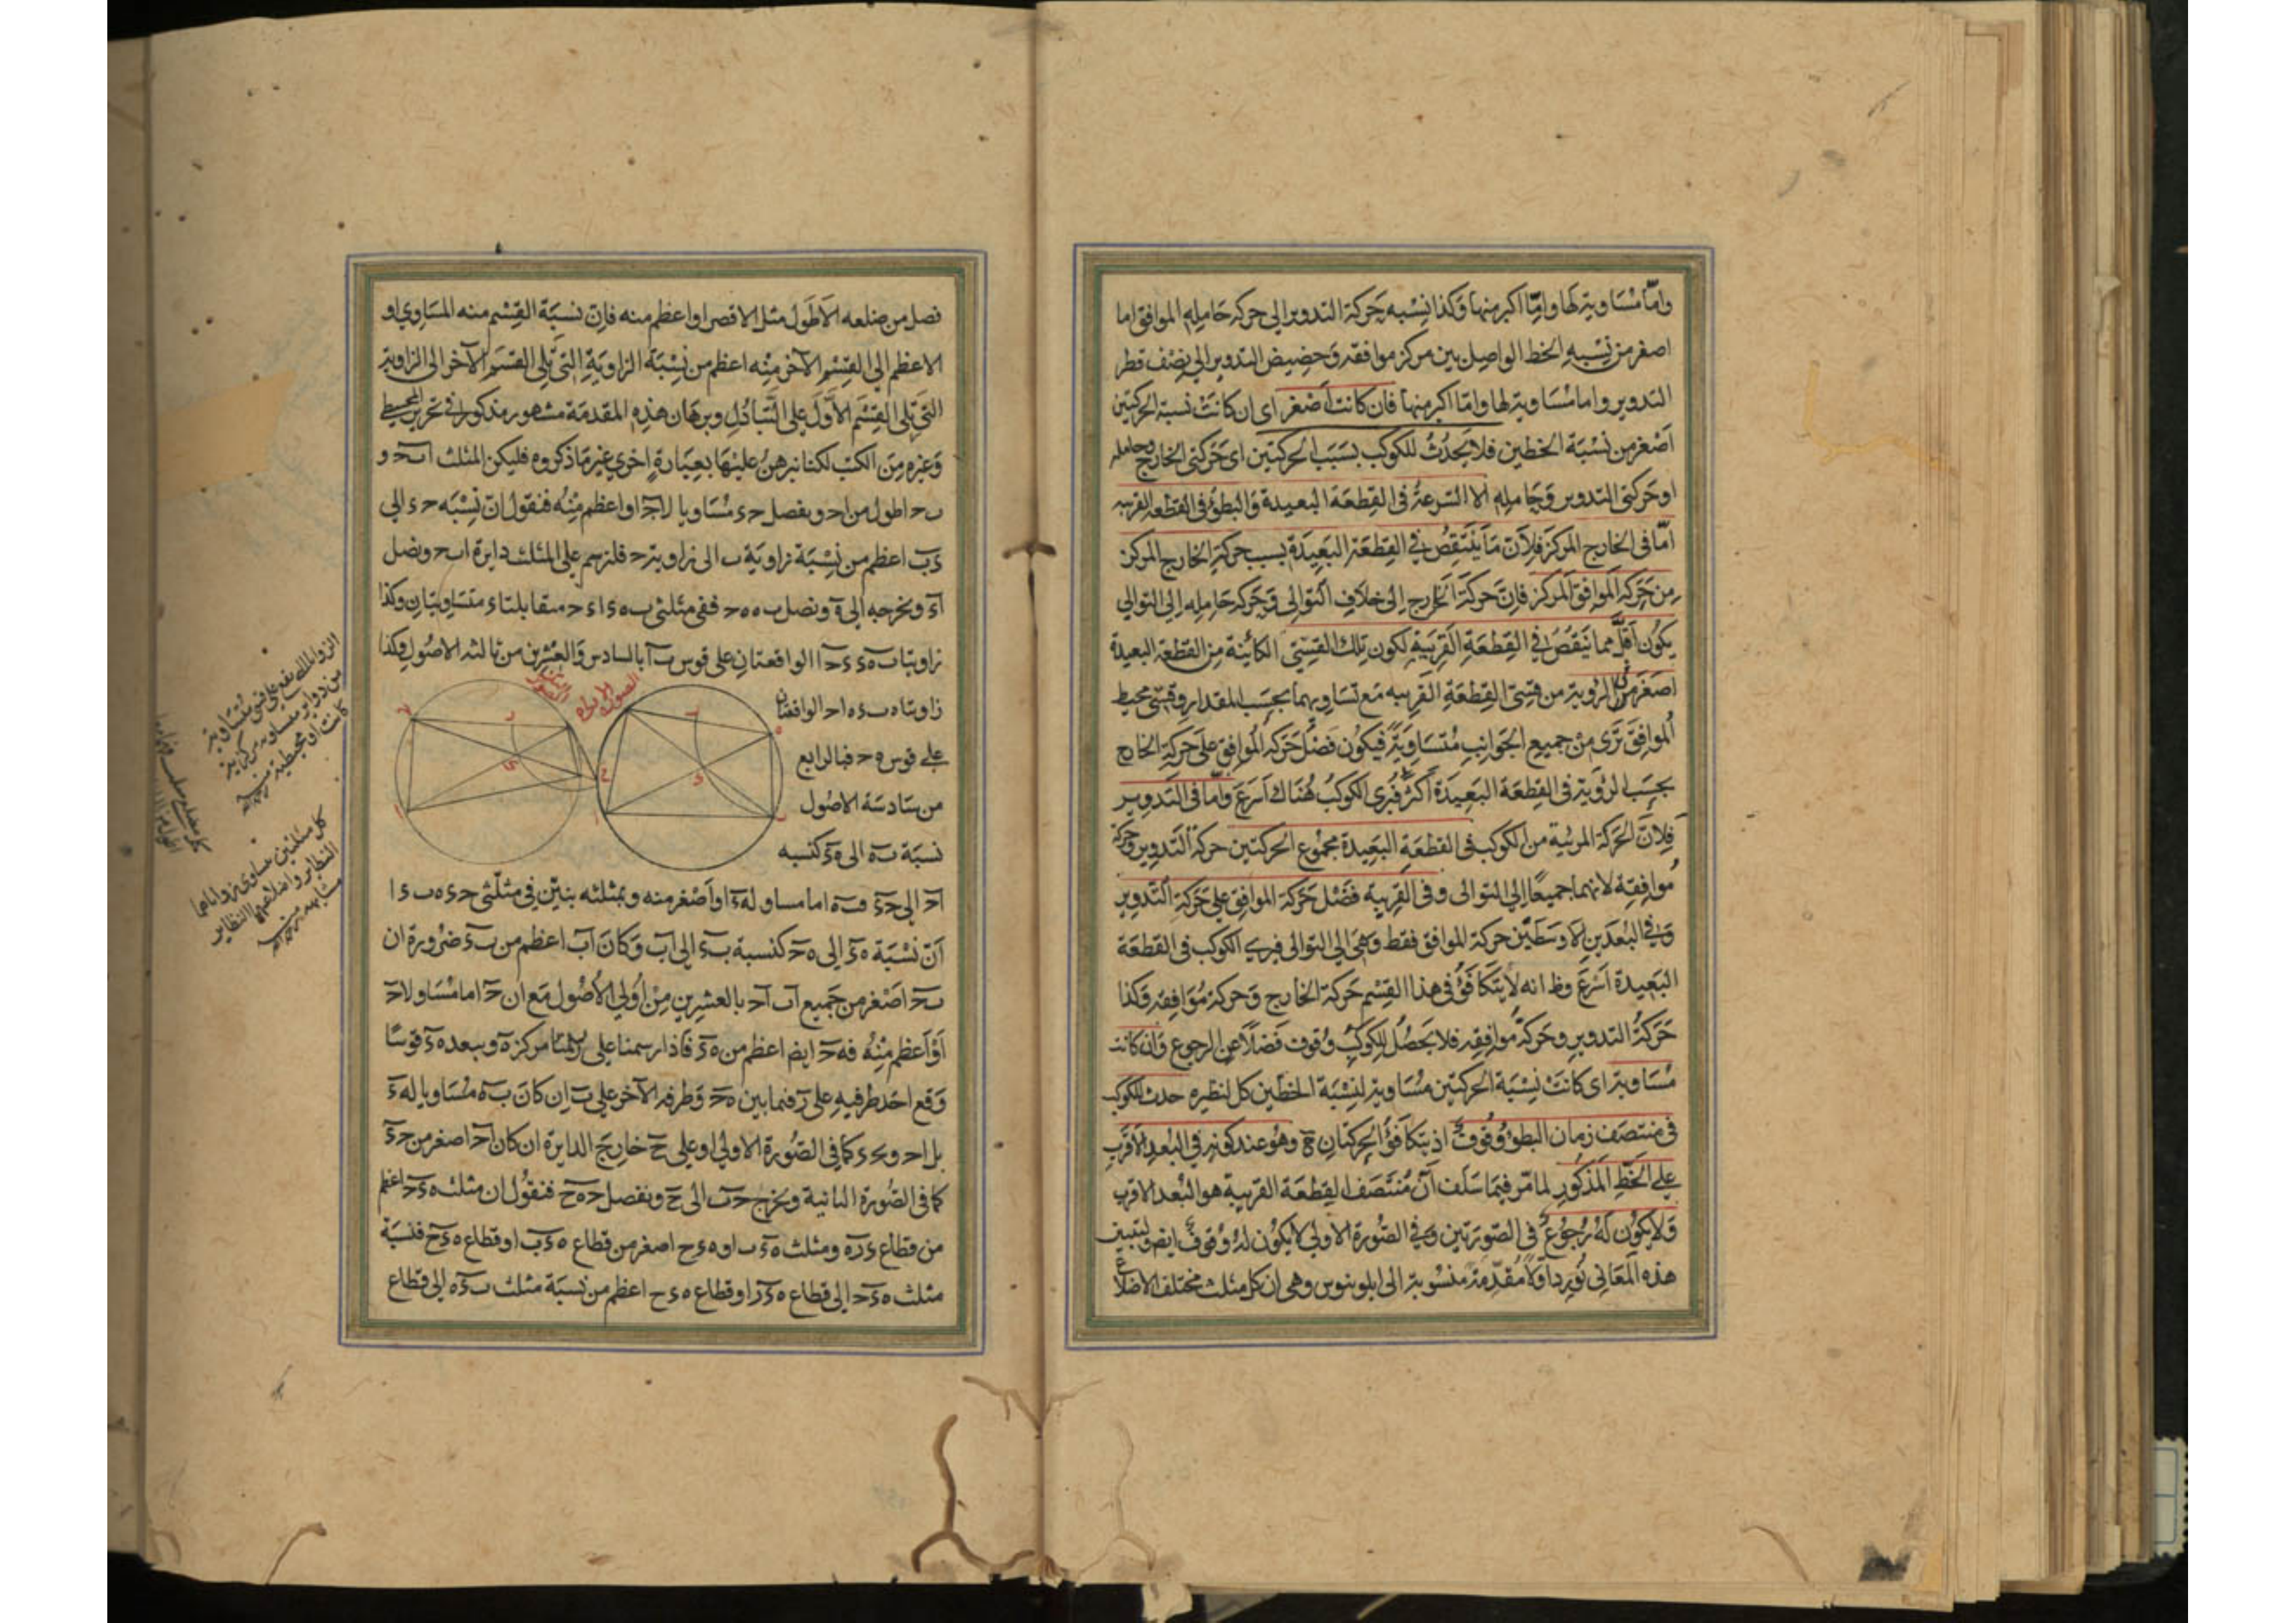 وامّا مساوية لها وامّا اكبر منها وكذا نسبة حركة التدوير الى حركة حامله الموافق اما
اصغر من نسبة الخط الواصل بين مركز موافقه وحضيض التدوير الى نصف قطر
التدوير واما مساوية لها وامّا اكبر منها فان كانت اصغر اى ان كانت نسبة الحركتين
اصغر من نسبة الخطين فلا يحدث للكوكب بسبب الحركتين اى حركتى الخارج وحامله
او حركتى التدوير وحامله الا السرعة فى القطعة البعيدة والبطؤ فى القطعة القريبه
امّا فى الخارج المركز فلانّ ما ينتقص فى القطعة البعيدة بسبب حركة الخارج المركز
من حركة الموافق المركز فانّ حركة الخارج الى خلاف التوالى وحركة حامله الى التوالى
يكون اقلّ مما ينقص فى القطعة القريبة لكون تلك القسىّ الكائنة من القطعة البعيدة
اصغر فى الروية من قسىّ القطعة القريبه مع تساويهما بحسب المقدار وقسىّ محيط
الموافق ترى من جميع الجوانب متساوية فيكون فضل حركة الموافق على حركة الخارج
بحسب الرؤية فى القطعة البعيدة اكثر فيرى الكوكب هناك اسرع وامّا فى التدوير
فلانّ الحركة المرئية من الكوكب فى القطعة البعيدة مجموع الحركتين حركة التدوير وحركة
موافقه لانهما جميعًا الى التوالى وفى القريبة فضل حركة الموافق على حركة التدوير
وفى البعدين الاوسطين حركة الموافق فقط وهى الى التوالى فيرى الكوكب فى القطعة
البعيدة اسرع وظ انه لا يتكافؤ فى هذا القسم حركة الخارج وحركة موافقه وكذا
حركة التدوير وحركة موافقه فلا يحصل للكوكب وقوف فضلاً عن الرجوع وان كانت
مساوية اى كانت نسبة الحركتين مساوية لنسبة الخطين كل لنظيره حدث للكوكب
فى منتصف زمان البطؤ وقوف اذ يتكافؤ الحركتان ح وهو عند كونه فى البعد الاقرب
على الخط المذكور لما مرّ فيما سلف انّ منتصف القطعة القريبة هو البعد الاقرب
ولا يكون له رجوع فى الصورتين وفى الصورة الاولى لا يكون له وقوف ايض ولتبيين
هذه المعانى نورد اولا مقدّمة منسوبة الى ابلونيوس وهى ان كل مثلث مختلف الاضلاع
فصل من ضلعه الاطول مثل الاقصر او اعظم منه فانّ نسبة القسم منه المساوي او
الاعظم الى القسم الآخر منه اعظم من نسبة الزاوية التى تلى القسم الآخر الى الزاوية
التى تلى القسم الاوّل على التبادل وبرهان هذه المقدمة مشهور مذكور فى تحرير المجسطى
وغيره من الكتب لكنا نبرهن عليها بعبارة اخرى غير ما ذكروه فليكن المثلث ا ب ح و
ب ح اطول من ا ح ويفصل ح ء مساويا لا ح او اعظم منه فنقول انّ نسبة ح ء الى
ء ب اعظم من نسبة زاوية ب الى زاوية ح فلنرسم على المثلث دايرة ا ب ح ونصل
ا ء ونخرجه الى ه ونصل ب ه ه ح ففى مثلثى ب ه ء ا ء ح متقابلتا ء متساويتان وكذا
زاويتا ب ه ء ء ح ا الواقعتان على قوس ب ا بالسادس والعشرين من ثالثه الاصول وكذا
زاويتا ه ب ء ه ا ح الواقعتان
على قوس ه ح فبالرابع
من سادسة الاصول
نسبة ب ه الى ه ء كنسبه
ا ح الى ح ء و ب ه اما مساو له ء او اصغر منه وبمثله بنيّن فى مثلّثى ح ء ه ب ء ا
انّ نسبة ه ء الى ه ح كنسبة ب ء الى ا ب وكان ا ب اعظم من ب ء ضرورة ان
ب ح اصغر من جميع ا ب ا ح بالعشرين من اولى الاصول مع ان ح ء اما مساو لا ح
او اعظم منه فه ح ايض اعظم من ه ء فاذا رسمنا على مركز ه وببعد ه ء قوسًا
وقع احد طرفيه على ر فيما بين ه ح وطرفه الآخر على ب ان كان ب ه مساويا له ء
بل ا ح و ح ء كما فى الصورة الاولى او على ح خارج الدايرة ان كان ا ح اصغر من ح ء
كما فى الصورة الثانية ونخرج ه ب الى ح ونفصل ه ح فنقول ان مثلث ه ء ح اعظم
من قطاع ء ر ه ومثلث ه ء ب او ه ء ح اصغر من قطاع ه ء ب او قطاع ه ء ح فنسبة
مثلث ه ء ح الى قطاع ه ء ر او قطاع ه ء ح اعظم من نسبة مثلث ب ء ه الى قطاع
الصورة الاولى
الصورة الثانية